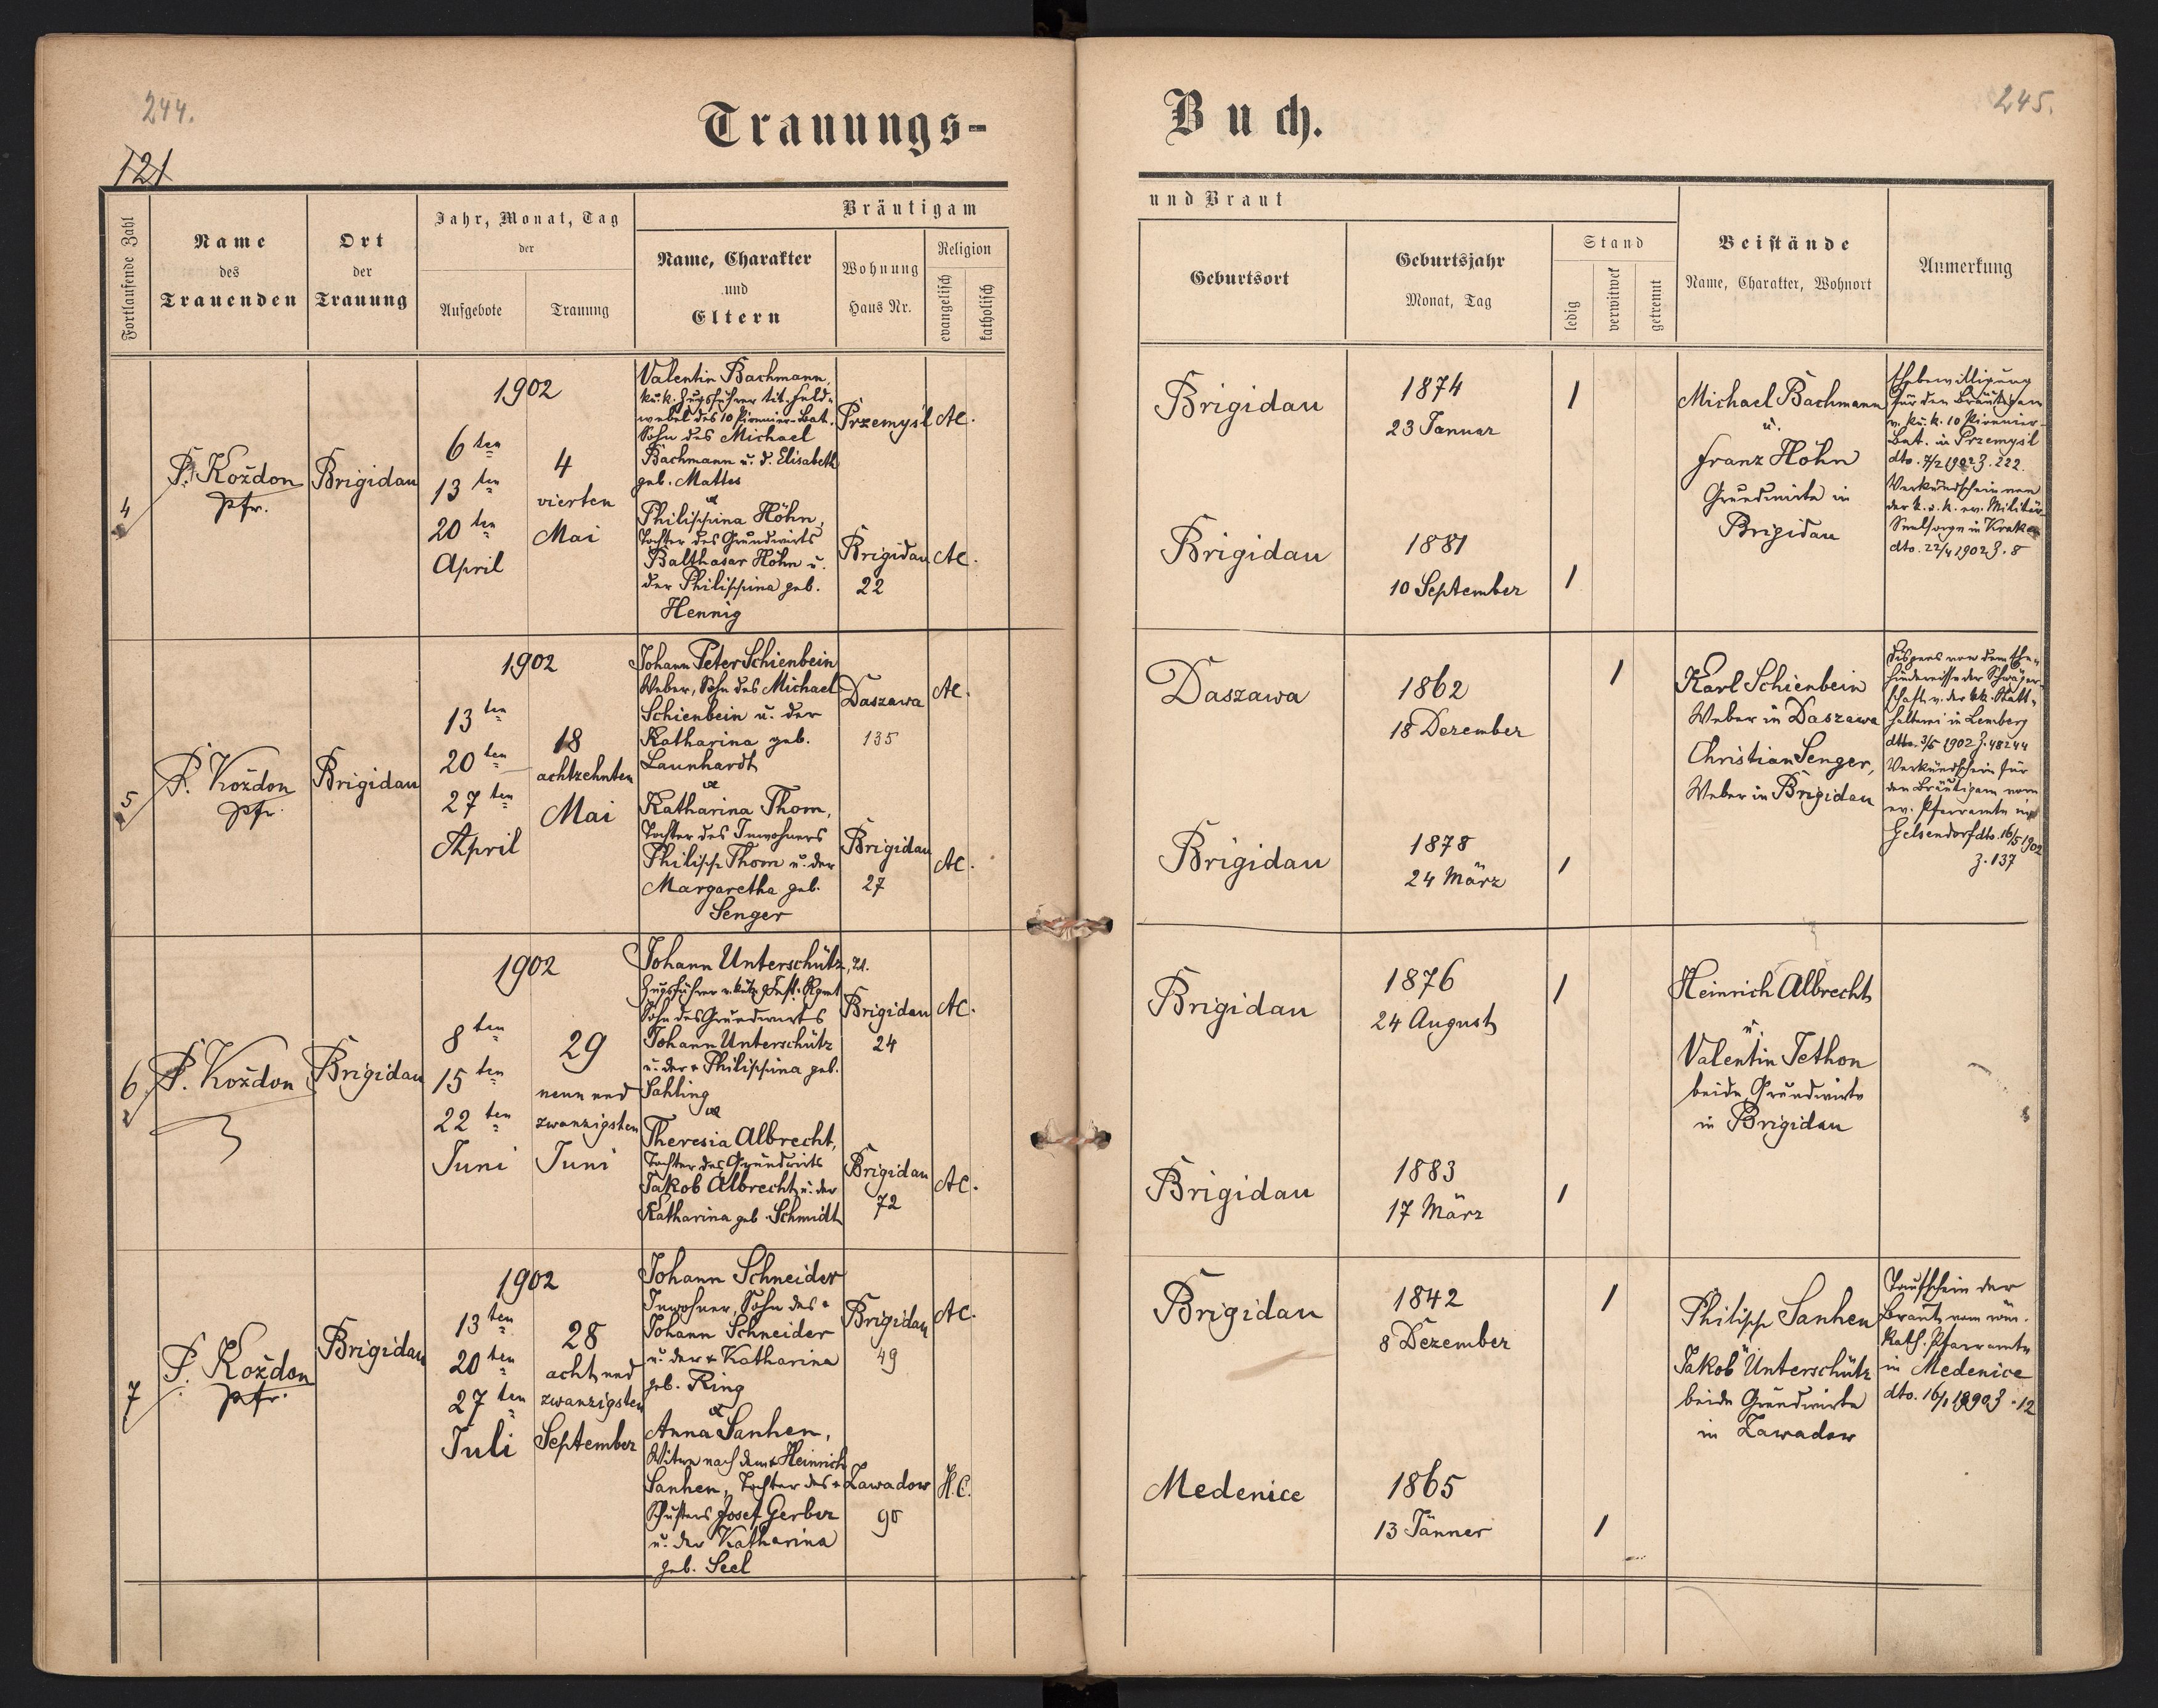 244.
121
Trauungs-
Buch.
245.
Fortlaufende Zahl
Name
des
Trauenden
Ort
der
Trauung
Jahr, Monat, Tag
der
Aufgebote
Trauung
Bräutigam
Name, Charakter
und
Eltern
Wohnung
Haus Nr.
Religion
evangelisch
katholisch
und Braut
Geburtsort
Geburtsjahr
Monat, Tag
Stand
ledig
verwitwet
getrennt
Beistände
Name, Charakter, Wohnort
Anmerkung
4
P. Koždon
Pfr.
Brigidau
1902
6 ten
13 ten
20 ten
April
4
vierten
Mai
Valentin Bachmann,
k. u. k. Zugsführer tit. Feld-
webel des 10 Pionnier-Bat.
Sohn des Michael
Bachmann u. d. Elisabeth
geb. Mattes
u.
Philippina Höhn,
Tochter des Grundwirts
Balthasar Höhn u.
der Philippina geb.
Hennig
Przemysl
AC.
Brigidau
22
AC.
Brigidau
1874
23 Januar
1
Brigidau
1881
10 September
1
Michael Bachmann
u.
Franz Höhn
Grundwirte in
Brigidau
Ehebewilligung
für den Bräutigam
v. k. u. k. 10 Pionnier-
Bat. in Przemysl
dto. 7/2 1902 Z. 222.
Verkündschein von
der k. u. k. ev. Militär-
Seelsorge in Krakau
dto. 22/4 1902 Z. 8
5
P. Koždon
Pfr.
Brigidau
1902
13 ten
20 ten
27 ten
April
18
achtzehnten
Mai
Johann Peter Schienbein
Weber, Sohn des Michael
Schienbein u. der
Katharina geb.
Launhardt
u.
Katharina Thom,
Tochter des Inwohners
Philipp Thom u. der
Margaretha geb.
Senger
Daszawa
135
AC.
Brigidau
27
AC.
Daszawa
1862
18 Dezember
1
Brigidau
1878
24 März
1
Karl Schienbein
Weber in Daszawa
Christian Senger,
Weber in Brigidau
Dispens von dem Ehe-
hindernisse der Schwäger-
schaft v. der kk. Statt-
halterei in Lemberg
dto. 3/5 1902 Z. 48244
Verkündschein für
den Bräutigam vom
ev. Pfarramte in
Gelsendorf dto. 16/5 1902
Z. 137
6.
P. Koždon
Brigidau
1902
8 ten
15 ten
22 ten
Juni
29
neun und
zwanzigsten
Juni
Johann Unterschütz,
Zugsführer
Sohn des Grundwirts
Johann Unterschütz
u. der + Philippina geb.
Sahling
u.
Theresia Albrecht,
Tochter des Grundwirts
Jakob Albrecht u. der
Katharina geb. Schmidt
Brigidau
24
AC.
Brigidau
72
AC.
Brigidau
1876
24 August
1
Brigidau
1883
17 März
1
Heinrich Albrecht
u.
Valentin Tethon
beide Grundwirte
in Brigidau
7
P. Koždon
Pfr.
Brigidau
1902
13 ten
20 ten
27 ten
Juli
28
acht und
zwanzigsten
September
Johann Schneider
Inwohner, Sohn des +
Johann Schneider
u. der + Katharina
geb. Ring
u.
Anna Sanhen,
Witwe nach dem + Heinrich
Sanhen, Tochter des +
Schusters Josef Gerber
u. der Katharina
geb. Seel
Brigidau
49
AC.
Zawadow
90
H.C.
Brigidau
1842
8 Dezember
1
Medenice
1865
13 Jänner
1
Philipp Sanhen
u.
Jakob Unterschütz
beide Grundwirte
in Zawadow
Taufschein der
Braut vom röm.
Kath. Pfarramte
in Medenice
dto. 16/1 1890 Z. 12